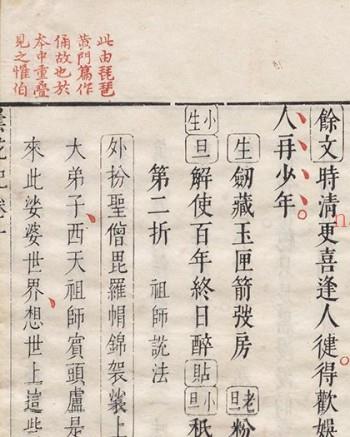 此由琵琶
黄門篇作
俑故也於
本中重叠
見之惟伯
餘文時清更喜逢人健得歡娛
人再少年
生劒藏玉匣箭弢房
老旦粉
小生旦解使百年終日醉貼
小旦祇
第二折 祖師說法
外扮聖僧毘羅帽錦袈裟上
大弟子西天祖師賓頭盧是
來此娑婆世界想世上這些
曇花記卷上